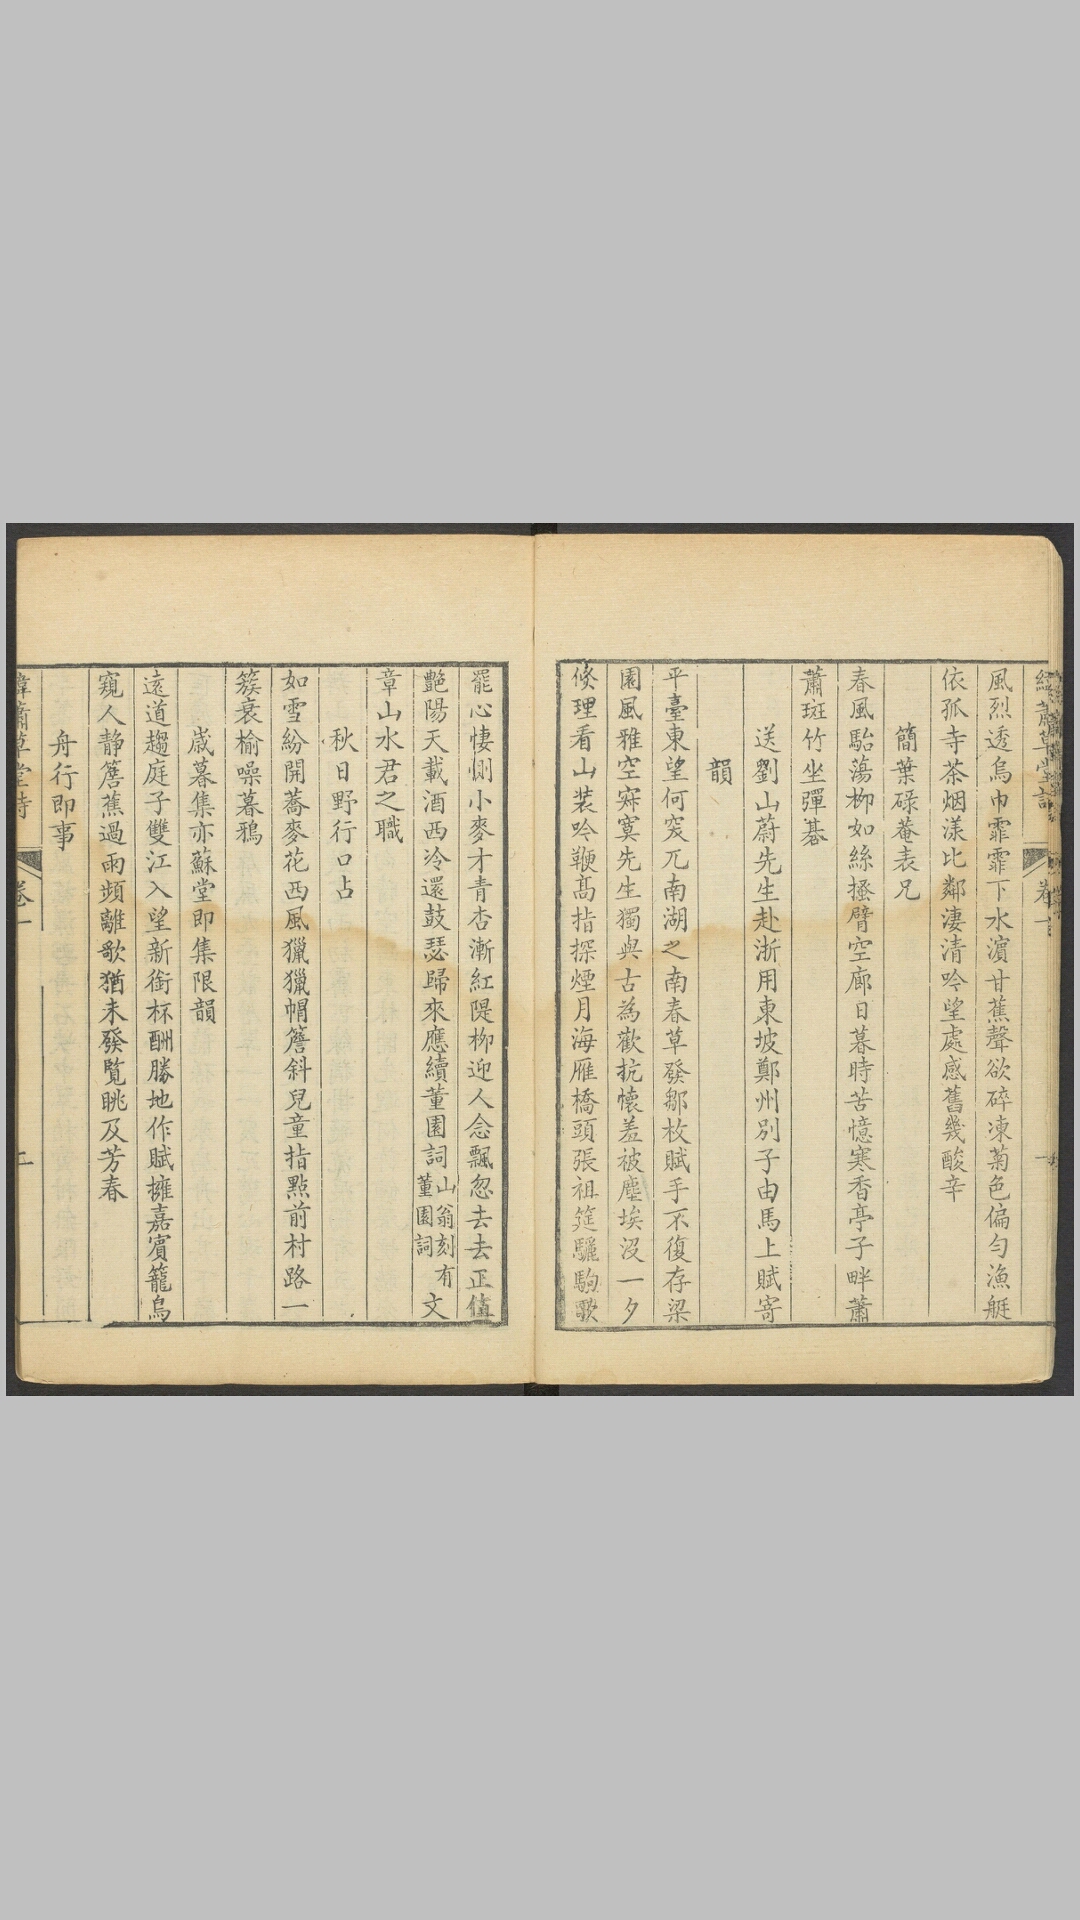 風烈透烏巾霏霏下水濵甘蕉聲欲碎凍菊色偏匀漁艇
依孤寺茶烟漾比鄰淒清吟望處感舊幾酸辛
簡葉碌菴表兄
春風駘蕩柳如絲搔臂空廊日暮時苦憶寒香亭子畔蕭
蕭斑竹坐彈碁
送劉山蔚先生赴浙用東坡鄭州別子由馬上賦寄
韻
平臺東望何突兀南湖之南春草發鄒枚賦手不復存梁
園風雅空寂寞先生獨與古為歡抗懷羞被塵埃沒一夕
倐理看山裝吟鞭髙指探煙月海雁橋頭張祖筵驪駒歌
罷心悽惻小麥才青杏漸紅隄柳迎人念飄忽去去正值
艶陽天載酒西泠還鼓瑟歸來應續董園詞山翁刻有董園詞文
章山水君之職
秋日野行口占
如雪紛開蕎麥花西風獵獵帽簷斜兒童指點前村路一
簇衰榆噪暮鴉
歲暮集亦蘇堂即集限韻
遠道趨庭子雙江入望新銜杯酬勝地作賦擁嘉賓籠鳥
窺人静簷蕉過雨頻離歌猶未發覽眺及芳春
舟行即事
緯蕭草堂詩 卷一